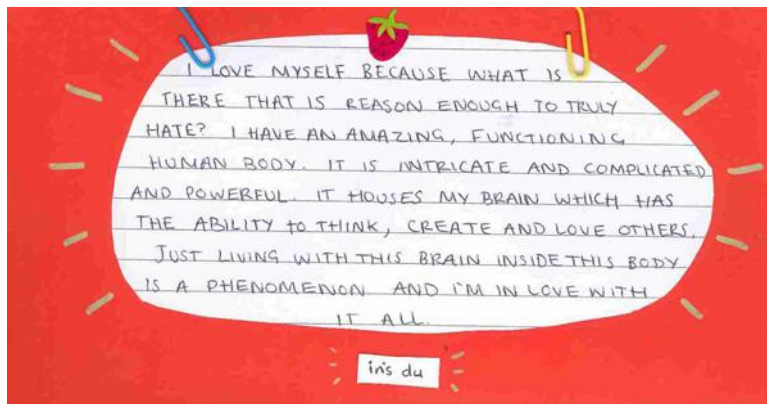 I LOVE MYSELF BECAUSE WHAT IS
THERE THAT IS REASON ENOUGH TO TRULY
HATE? I HAVE AN AMAZING, FUNCTIONING
HUMAN BODY. IT IS INTRICATE AND COMPLICATED
AND POWERFUL. IT HOUSES MY BRAIN WHICH HAS
THE ABILITY to THINK, CREATE AND LOVE OTHERS.
JUST LIVING WITH THIS BRAIN INSIDE THIS BODY
IS A PHENOMENON AND I'M IN LOVE WITH
IT ALL.
iris du